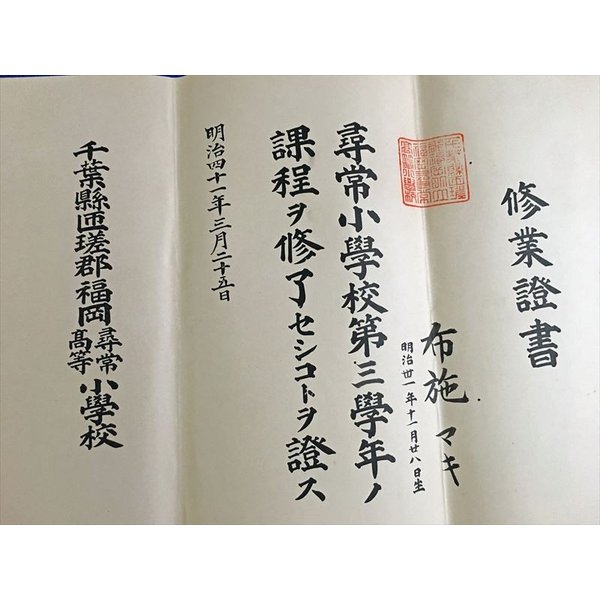 修業證書
布施マキ
明治丗一年十一月廿八日生
尋常小學校第三學年ノ
課程ヲ修了セシコトヲ證ス
明治四十一年三月二十五日
千葉縣匝瑳郡福岡尋常高等小學校